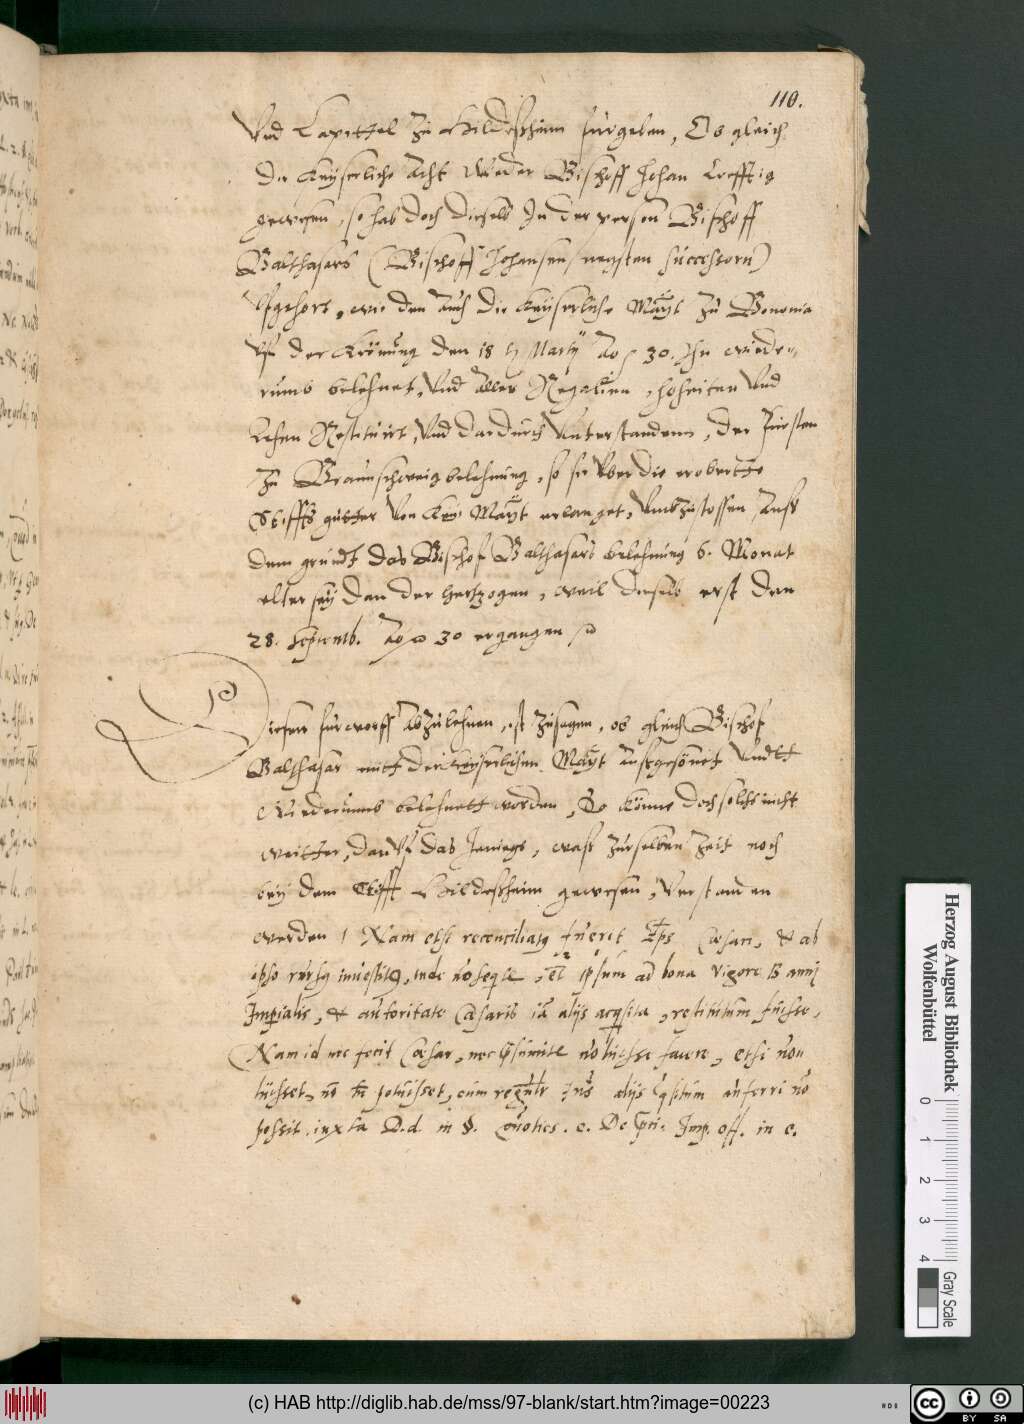 110.
Vnd Capittel zu Hildeßheim furgeben, Ob gleich
die Keyserliche Acht wieder Bischoff Johan Crefftig
gewesen, so hab doch dieselb in der person Bischoff
Balthasars (Bischoff Johansen negsten successorn)
Vfgehort, wie den auch die Keyserliche Maÿt zu Bononia
vf der Krönung den 18 Martÿ Ao 30. Ihn wiede-
rumb belehnet, Vnd aller Regalien, hoheiten Vnd
Lehen Restituirt, Vnd dardurch Vnterstanden, der Fürsten
zu Braunschweig belehnung, so sie Vber die eroberte
Stiffts gütter Von Key. Maÿt erlanget, Vmbzustossen Auß
dem grundt das Bischof Balthasars belehnung 6. Monat
elter sey Dan der Hertzogen, weil dieselb erst den
28. Septemb. Ao 30 ergangen
Diesen furworff Abzulehnen, ist zusagen, ob gleich Bischof
Balthasar mitt der Keyserlichen Maÿt Außgesönet Vndtt
Wiederumb belehnett worden, So könne doch solchs nicht
weitter, dan Vf das Jenige, waß zurselben Zeit noch
bey dem Stifft Hildeßheim gewesen, Verstanden
werden / Nam etsi reconciliatq fuerit Eps Cæsari, & ab
ipso rursq inuestitq, inde nō seqtr, et ipsum ad bona vigore banni
Imperialis, & autoritate Cæsaris iā alijs acqsita, restitutum fuisse,
Nam id nec fecit Cæsar, nec psumitr uoluisse facere, etsi uo-
luisset, nō tn potuisset, cum regulr ius alijs qsitum auferri nō
possit, iuxta D.d. in §. quoties. c. De pri. Imp. off. in c.
Herzog August Bibliothek
Wolfenbüttel
0 1 2 3 4
Gray Scale
(c) HAB http://diglib.hab.de/mss/97-blank/start.htm?image=00223
cc BY SA